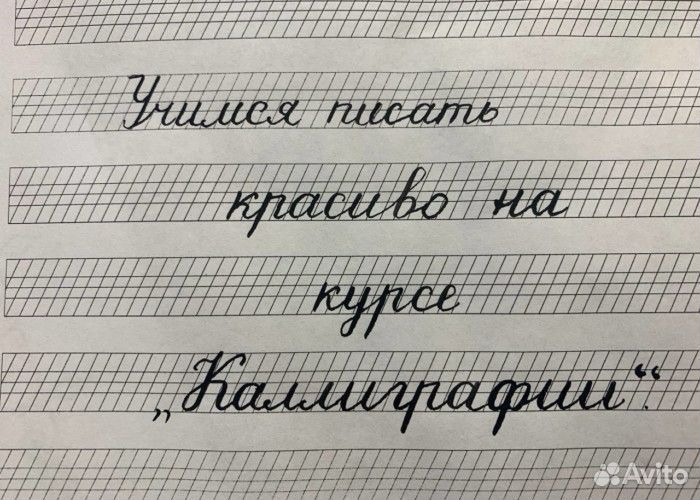 Учимся писать
красиво на
курсе
„Каллиграфии“.
Avito